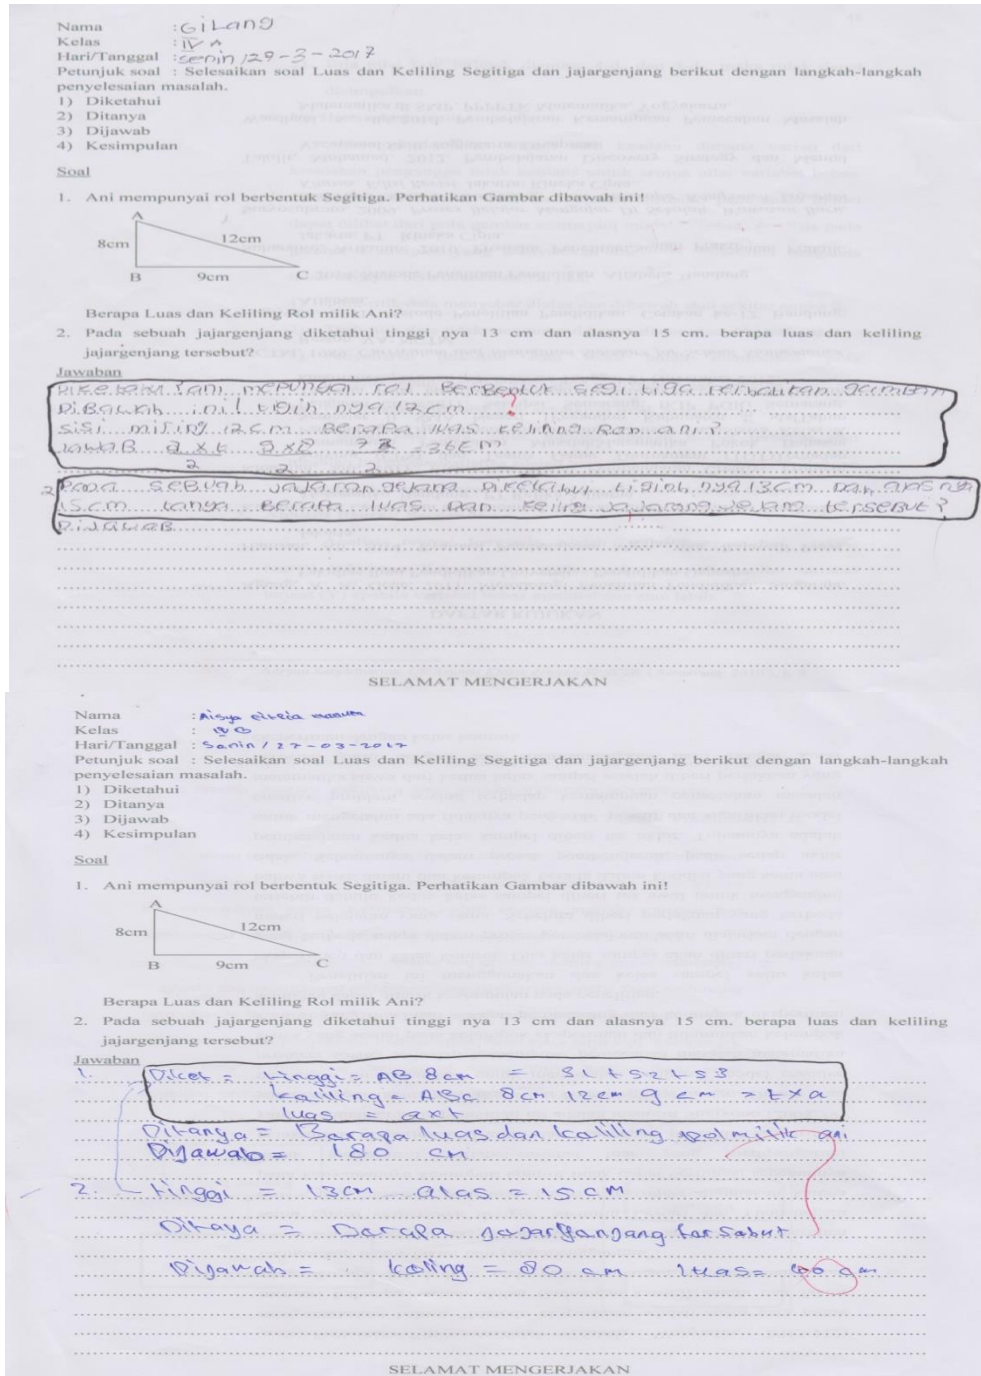 Nama : GiLang
Kelas : IV A
Hari/Tanggal : senin /29-3-2017
Petunjuk soal : Selesaikan soal Luas dan Keliling Segitiga dan jajargenjang berikut dengan langkah-langkah
penyelesaian masalah.
1) Diketahui
2) Ditanya
3) Dijawab
4) Kesimpulan
Soal
1. Ani mempunyai rol berbentuk Segitiga. Perhatikan Gambar dibawah ini!
A
8cm 12cm
B 9cm C
Berapa Luas dan Keliling Rol milik Ani?
2. Pada sebuah jajargenjang diketahui tinggi nya 13 cm dan alasnya 15 cm. berapa luas dan keliling
jajargenjang tersebut?
Jawaban
ani mepunyai rol Berbentuk segi tiga perhatikan gambar
DiBawah ini! nya 12cm ?
sisi miring 12cm Berapa luas keliling Ron ani?
JawaB a x t 9x8 72 = 36cm
2 2 2
2 Pada seBuah Diketahui nya 13cm Dan
15cm tanya Berapa luas Dan tersebut?
DiJawaB
SELAMAT MENGERJAKAN
Nama : Aisya
Kelas : IV B
Hari/Tanggal : Sanin / 27-03-2017
Petunjuk soal : Selesaikan soal Luas dan Keliling Segitiga dan jajargenjang berikut dengan langkah-langkah
penyelesaian masalah.
1) Diketahui
2) Ditanya
3) Dijawab
4) Kesimpulan
Soal
1. Ani mempunyai rol berbentuk Segitiga. Perhatikan Gambar dibawah ini!
A
8cm 12cm
B 9cm C
Berapa Luas dan Keliling Rol milik Ani?
2. Pada sebuah jajargenjang diketahui tinggi nya 13 cm dan alasnya 15 cm. berapa luas dan keliling
jajargenjang tersebut?
Jawaban
1. Diket = tinggi = AB 8cm = S1+S2+S3
kaliling = ABC 8cm 12cm 9cm = t x a
luas = axt
Ditanya = Barapa luas dan kaliling rol milik ani
Dijawab = 180 cm
2. tinggi = 13cm alas = 15cm
Ditaya = Barapa tarsabut
Dijawab = kaling = 80 cm luas = cm
SELAMAT MENGERJAKAN